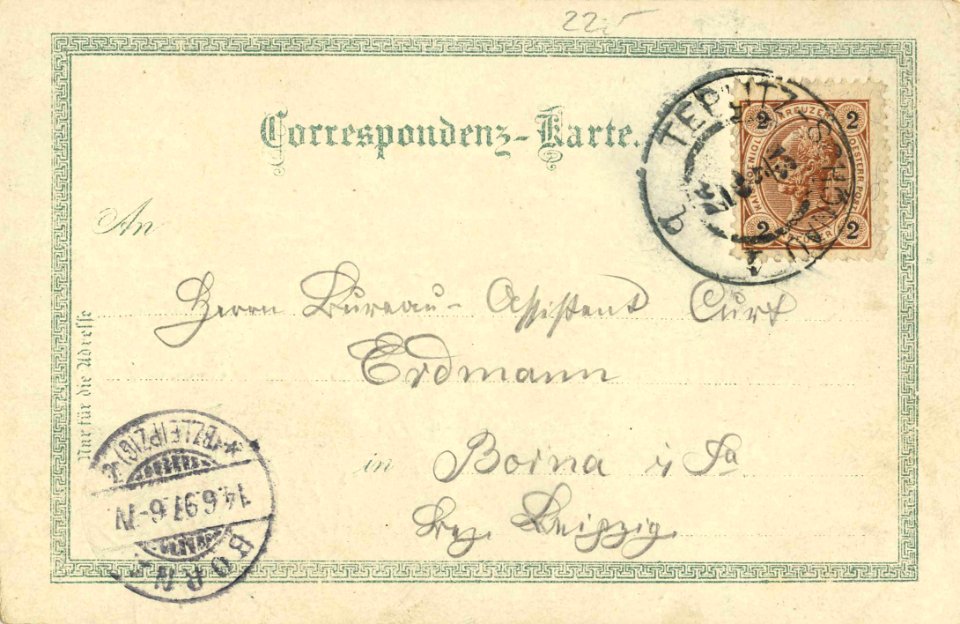 22.-
Correspondenz-Karte.
TEPLITZ-SCHÖNAU 1
2 KREUZER 2
2 2
An
Herrn Bureau-Assistent Curt
Erdmann
Nur für die Adresse
in Borna i/Sa
Bez. Leipzig.
* (BZ. LEIPZIG) *
14.6.97. 6-7N
BORNA